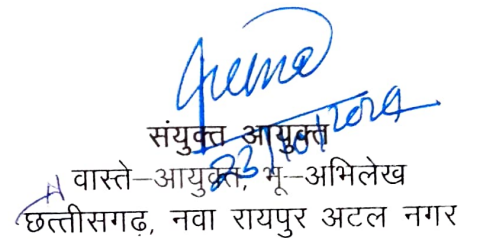 संयुक्त आयुक्त
23/10/2024
वास्ते–आयुक्त, भू–अभिलेख
छत्तीसगढ़, नवा रायपुर अटल नगर